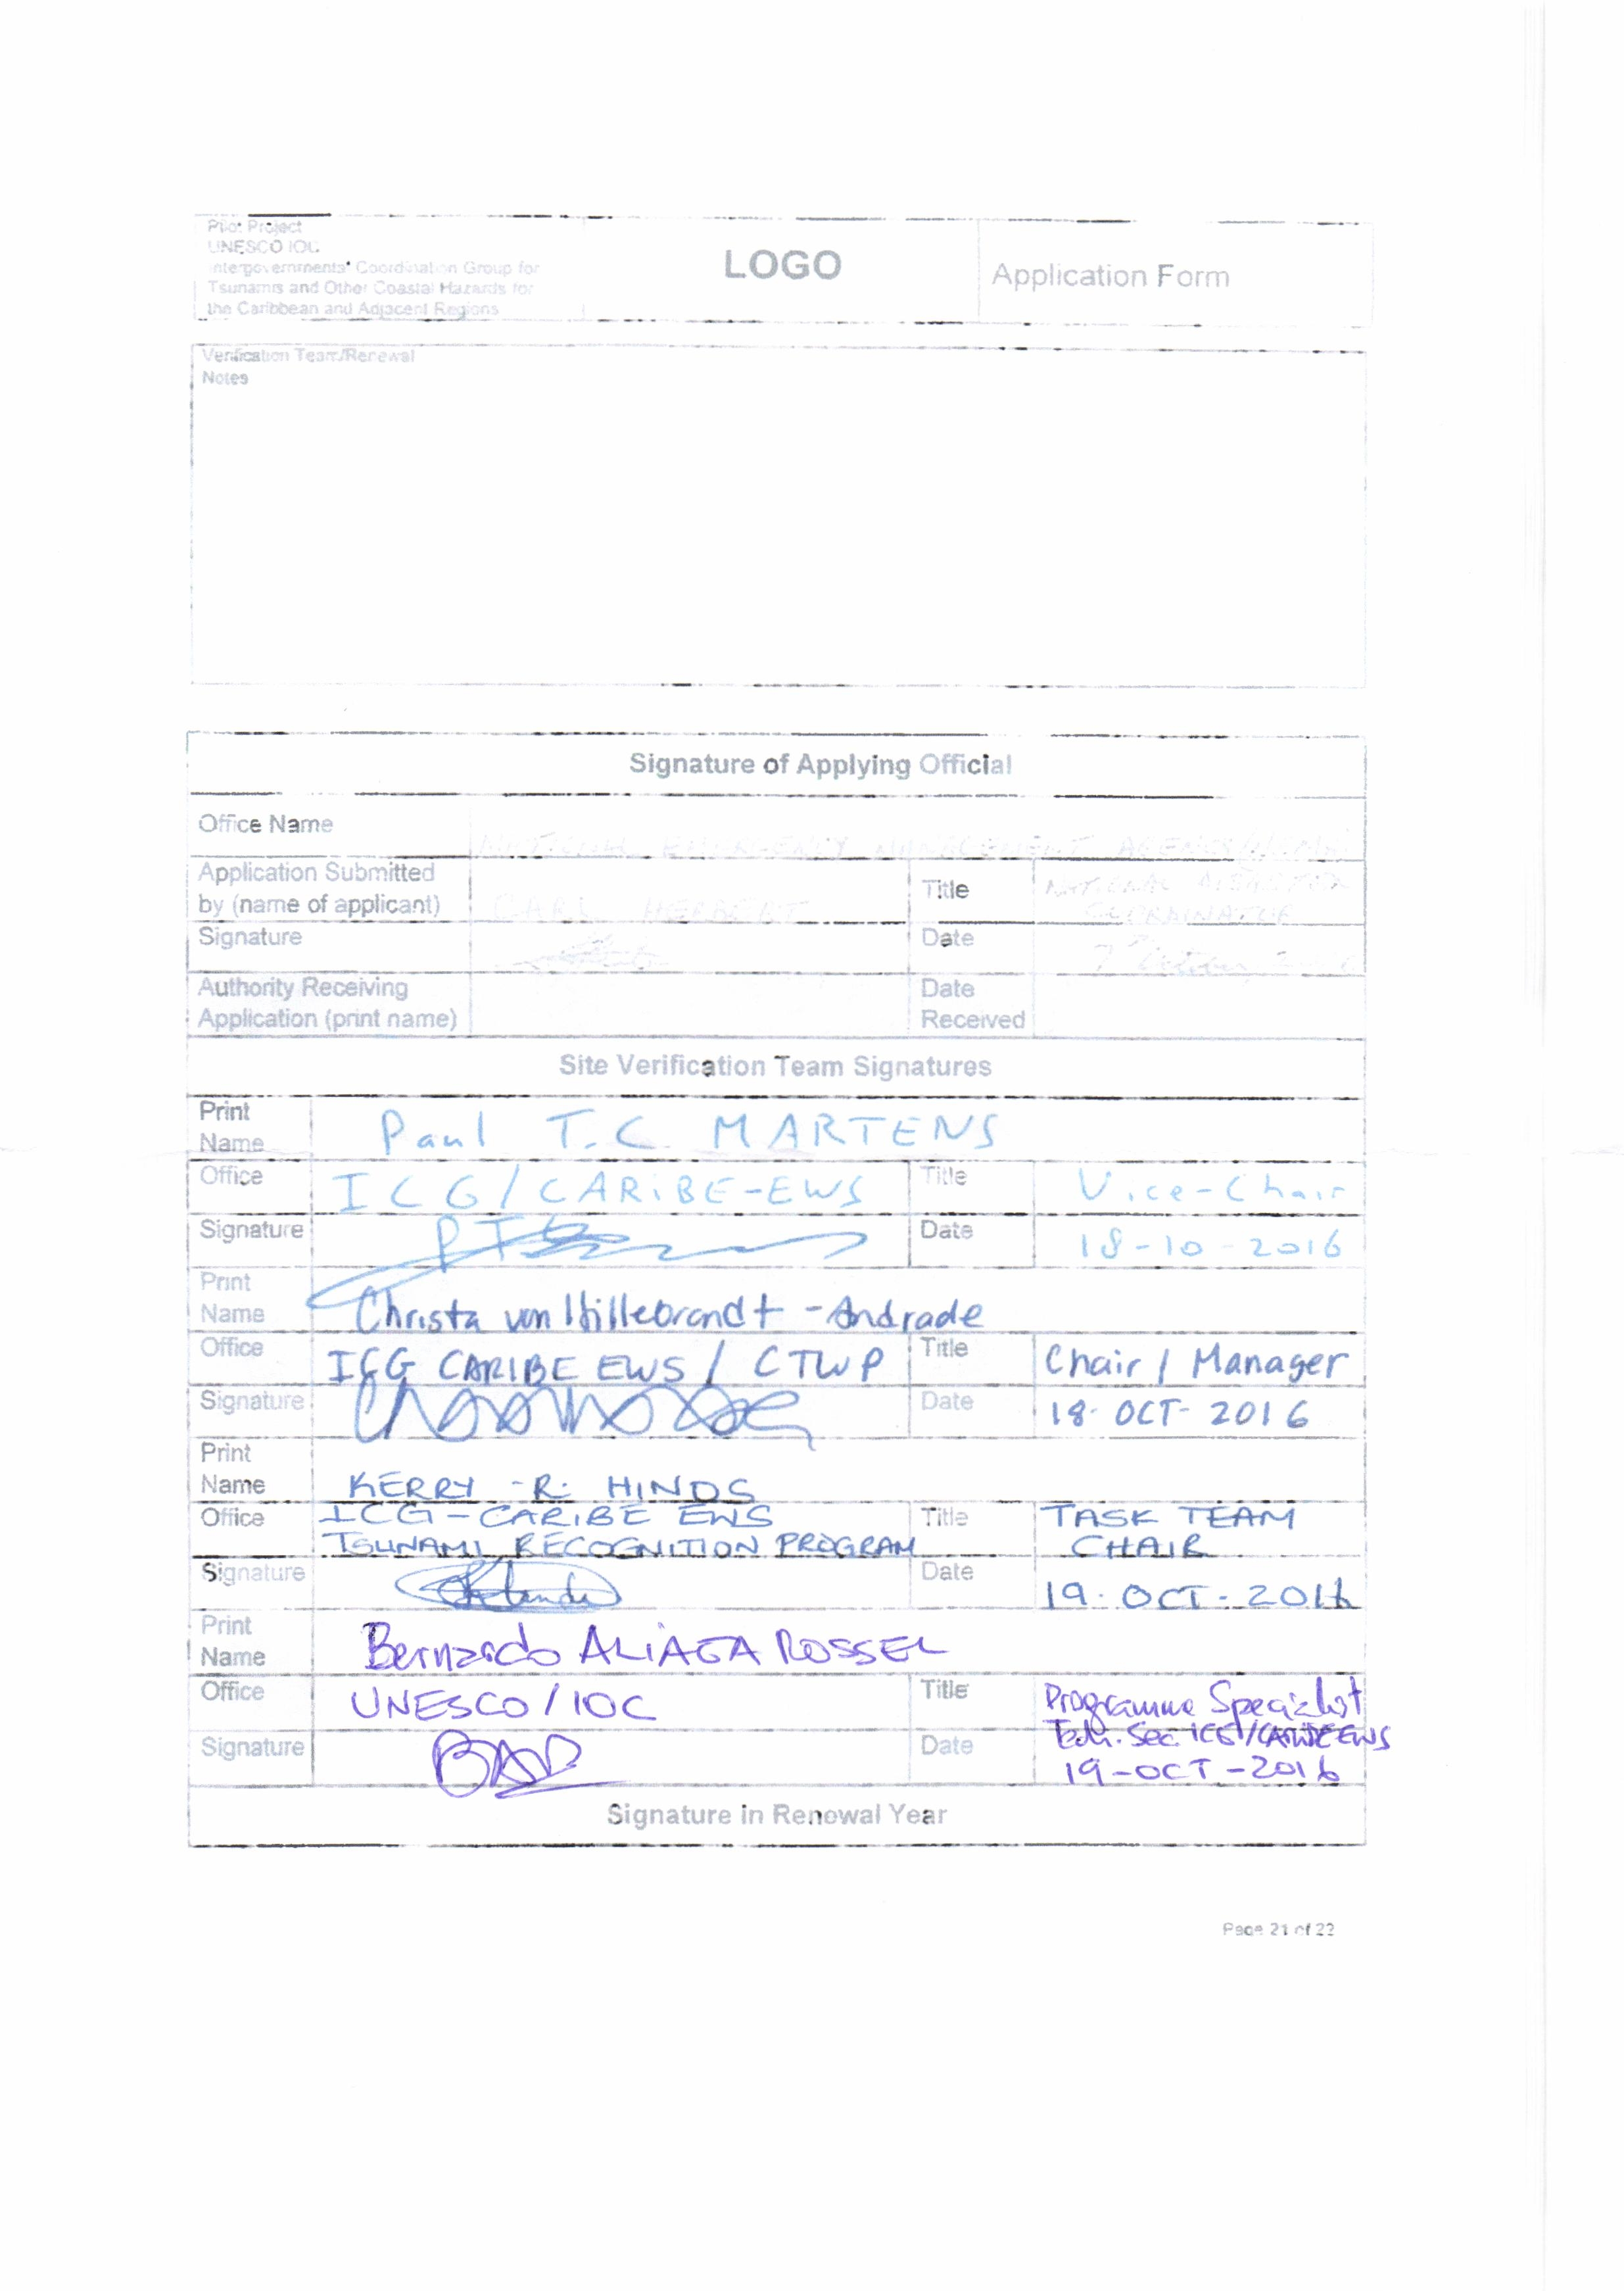 Pilot Project
UNESCO IOC
Intergovernmental Coordination Group for
Tsunamis and Other Coastal Hazards for
the Caribbean and Adjacent Regions
LOGO
Application Form
Verification Team/Renewal
Notes
Signature of Applying Official
Office Name
NATIONAL EMERGENCY MANAGEMENT AGENCY
Application Submitted
by (name of applicant)
CARL HERBERT
Title
NATIONAL DISASTER
COORDINATOR
Signature
Date
7 October
Authority Receiving
Application (print name)
Date
Received
Site Verification Team Signatures
Print
Name
Paul T.C. MARTENS
Office
ICG/CARiBE-EWS
Title
Vice-Chair
Signature
Date
18-10-2016
Print
Name
Christa von Hillebrandt-Andrade
Office
ICG CARIBE EWS / CTWP
Title
Chair / Manager
Signature
Date
18-OCT-2016
Print
Name
KERRY-R. HINDS
Office
ICG-CARIBE EWS
TSUNAMI RECOGNITION PROGRAM
Title
TASK TEAM
CHAIR
Signature
Date
19-OCT-2016
Print
Name
Bernardo ALIAGA ROSSEL
Office
UNESCO/IOC
Title
Programme Specialist
Tech. Sec ICG/CARIBE EWS
Signature
Date
19-OCT-2016
Signature in Renewal Year
Page 21 of 22